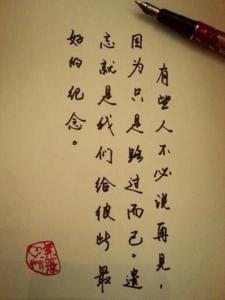 有些人不必说再见，
因为只是路过而已。遗
忘就是我们给彼此最
好的纪念。